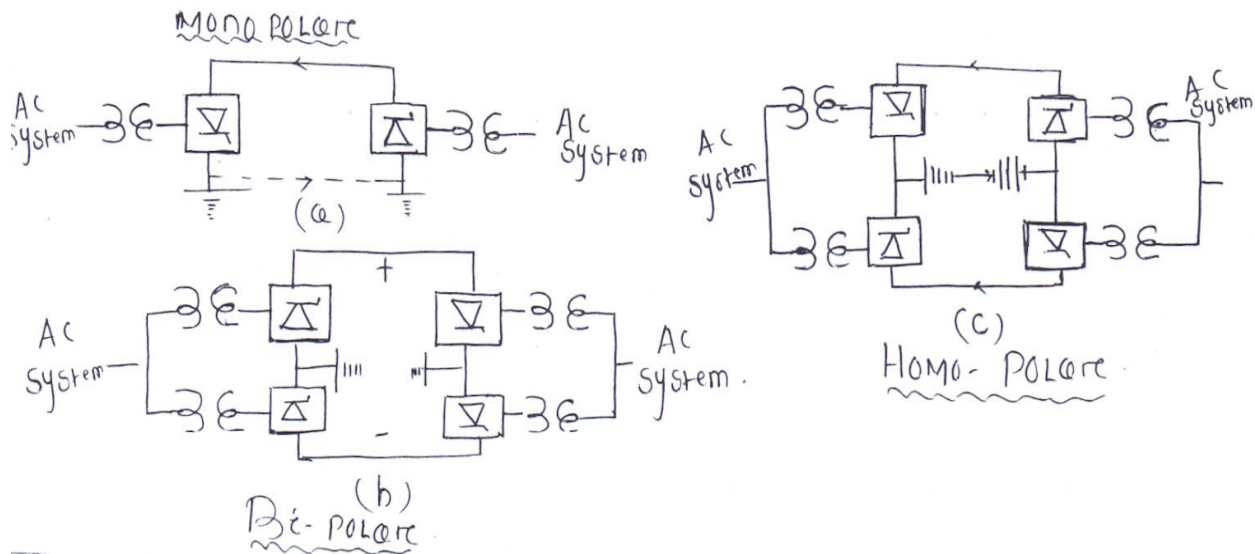 MONO POLare
AC
System
AC
System
(a)
AC
System
+
-
AC
System.
(b)
Bi-POLare
AC
System
AC
System
(C)
HOMO-POLare